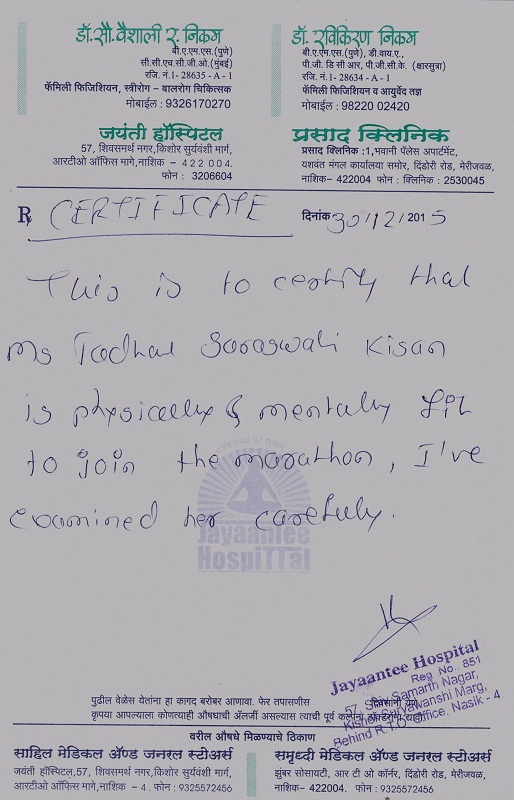 डॉ.सौ.वैशाली र. निकम
बी.ए.एम.एस.(पुणे)
सी.सी.एच.सी.जी.ओ.(मुंबई)
रजि. नं.1- 28635 - A - 1
फॅमिली फिजिशियन, स्त्रीरोग – बालरोग चिकित्सक
मोबाईल : 9326170270
जयंती हॉस्पिटल
57, शिवसमर्थ नगर,किशोर सुर्यवंशी मार्ग,
आरटीओ ऑफिस मागे,नाशिक – 422 004.
फोन : 3206604
डॉ. रविकिरण निकम
बी.ए.एम.एस.(पुणे), डी.वाय.ए.,
पी.जी. डि सी आर, पी.जी.सी.के. (क्षारसुत्रा)
रजि. नं.1- 28634 - A - 1
फॅमिली फिजिशियन व आयुर्वेद तज्ञ
मोबाईल : 98220 02420
प्रसाद क्लिनिक
प्रसाद क्लिनिक :1,भवानी पॅलेस अपार्टमेंट,
यशवंत मंगल कार्यालया समोर, दिंडोरी रोड, मेरीजवळ,
नाशिक- 422004 फोन : क्लिनिक : 2530045
R CERTIFICATE दिनांक 30/12/2015
This is to certify that
Ms Saraswati Kisan
is physically & mentally fit
to join the marathon, I've
examined her carefuly.
Jayaantee
HospiTTal
Jayaantee Hospital
Reg No.. 851
57, Shiv Samarth Nagar,
Kishor Suryawanshi Marg,
Behind R.T.O. Office, Nasik - 4
पुढील वेळेस येतांना हा कागद बरोबर आणावा. फेर तपासणीस
कृपया आपल्याला कोणत्याही औषधाची ॲलर्जी असल्यास त्याची पूर्व
वरील औषधे मिळण्याचे ठिकाण
साहिल मेडिकल ॲण्ड जनरल स्टोअर्स
जयंती हॉस्पिटल,57, शिवसमर्थ नगर,किशोर सुर्यवंशी मार्ग,
आरटीओ ऑफिस मागे,नाशिक - 4. फोन : 9325572456
समृध्दी मेडिकल ॲण्ड जनरल स्टोअर्स
झुंबर सोसायटी, आर टी ओ कॉर्नर, दिंडोरी रोड, मेरीजवळ,
नाशिक– 422004. फोन : 9325557456